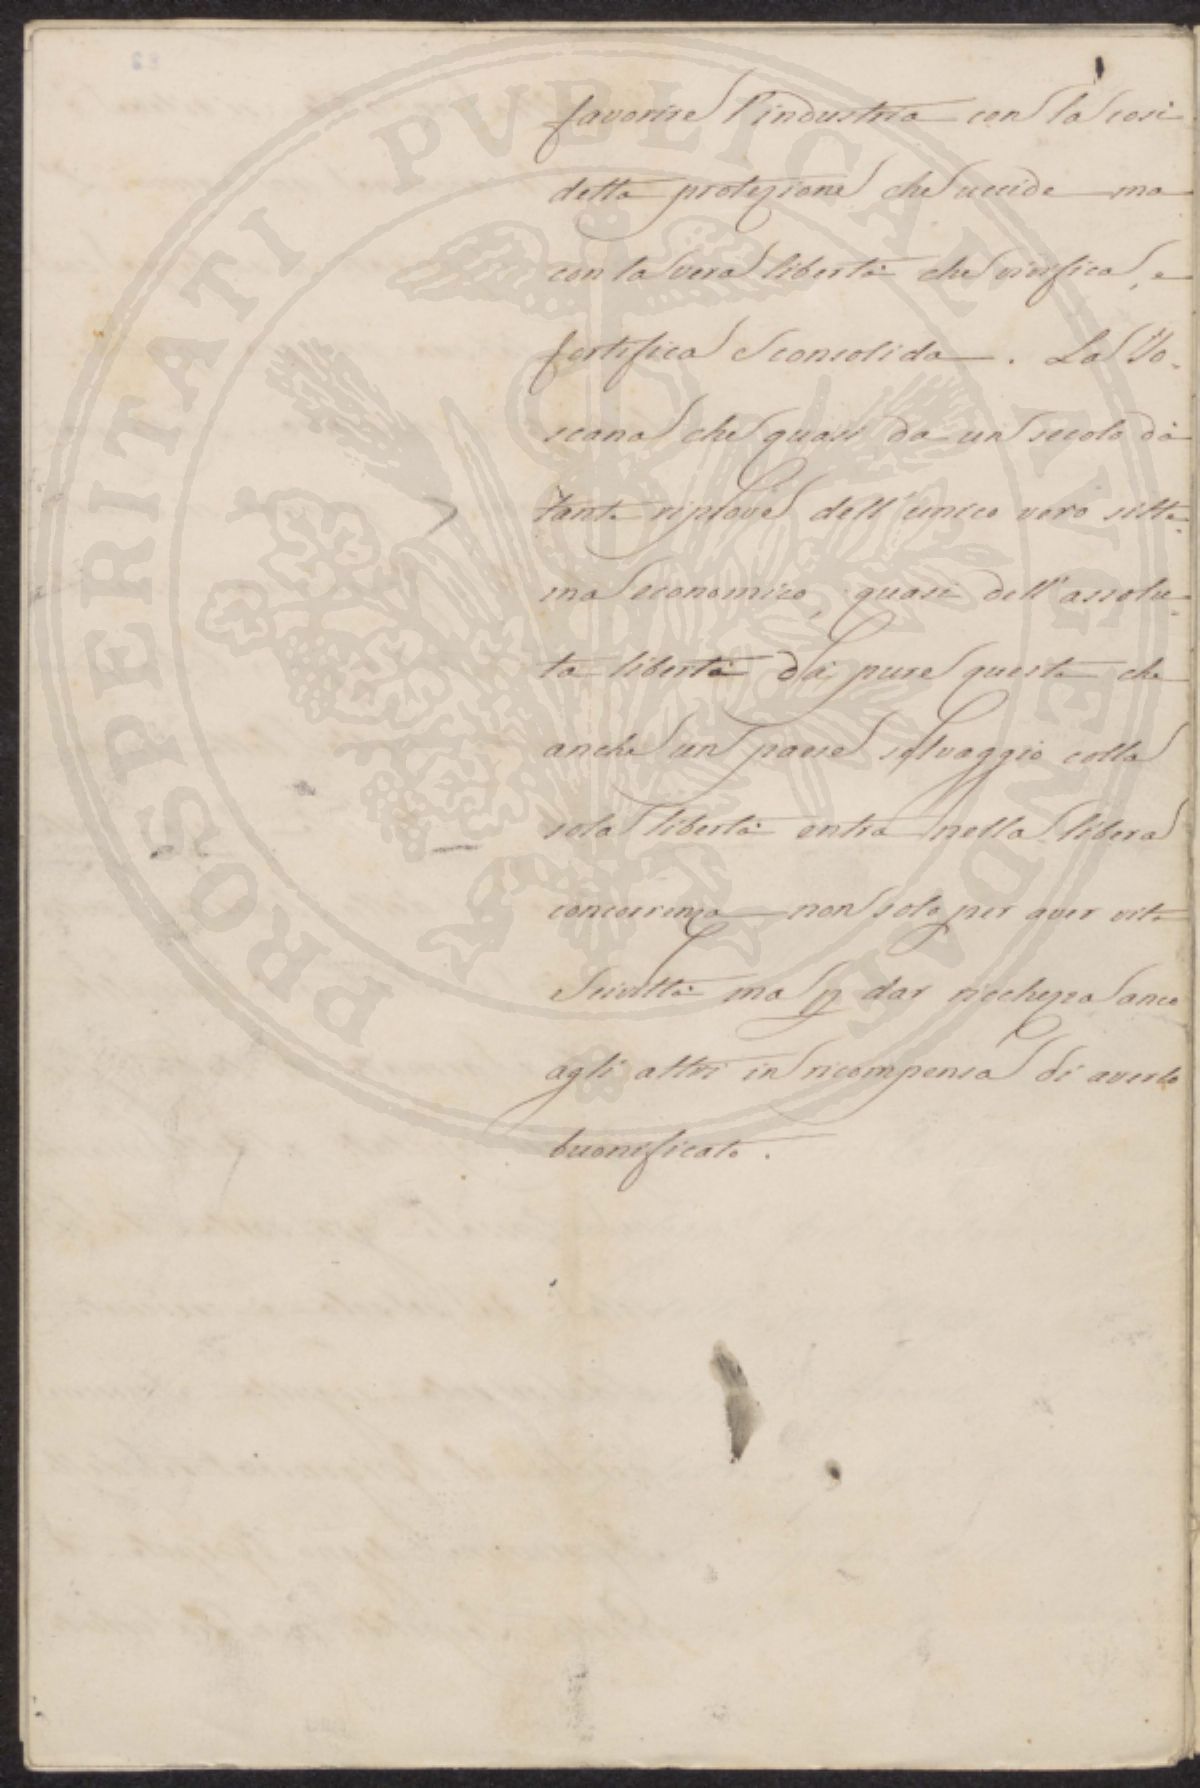 favorire l'industria con la cosi
detta protezione che uccide ma
con la vera libertà che vivifica, e
fortifica e consolida. La To-
scana che quasi da un secolo dà
tante riprove dell'unico vero siste-
ma economico, quasi dell'assolu-
ta libertà dà pure questa che
anche un paese selvaggio colla
sola libertà entra nella libera
concorrenza non solo per aver vita
e civiltà ma p dar ricchezza anco
agli altri in ricompensa di averlo
buonificato.
PROSPERITATI PVBLICAE AVGENDAE